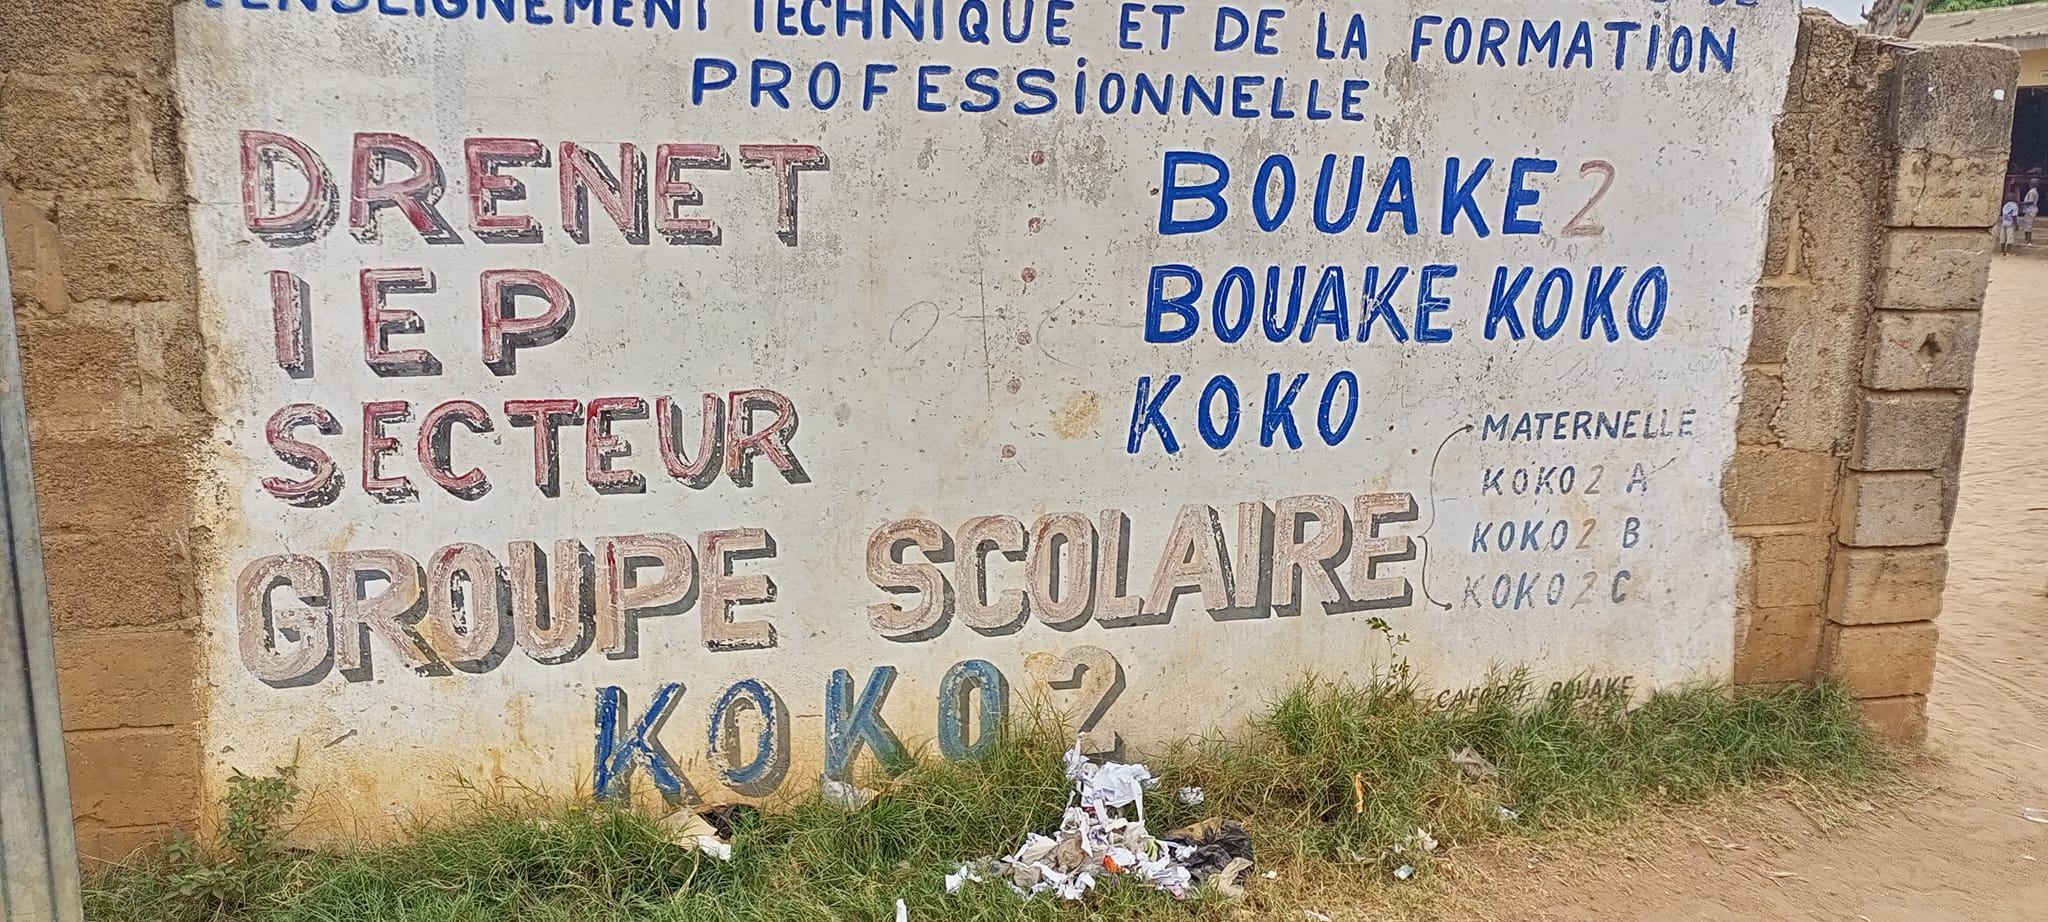 L'ENSEIGNEMENT TECHNIQUE ET DE LA FORMATION
PROFESSIONNELLE
DRENET : BOUAKE 2
IEP : BOUAKE KOKO
SECTEUR : KOKO
GROUPE SCOLAIRE
MATERNELLE
KOKO 2 A
KOKO 2 B
KOKO 2 C
KOKO 2
BOUAKE